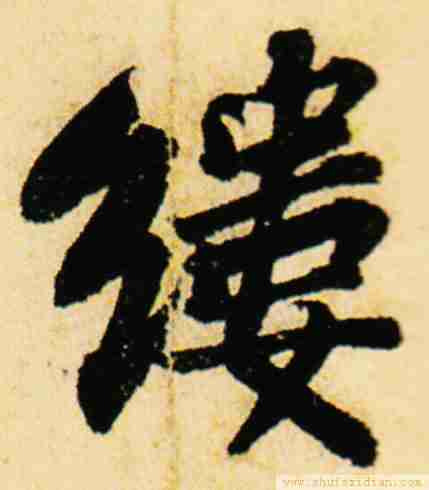 縷
www.shufazidian.com